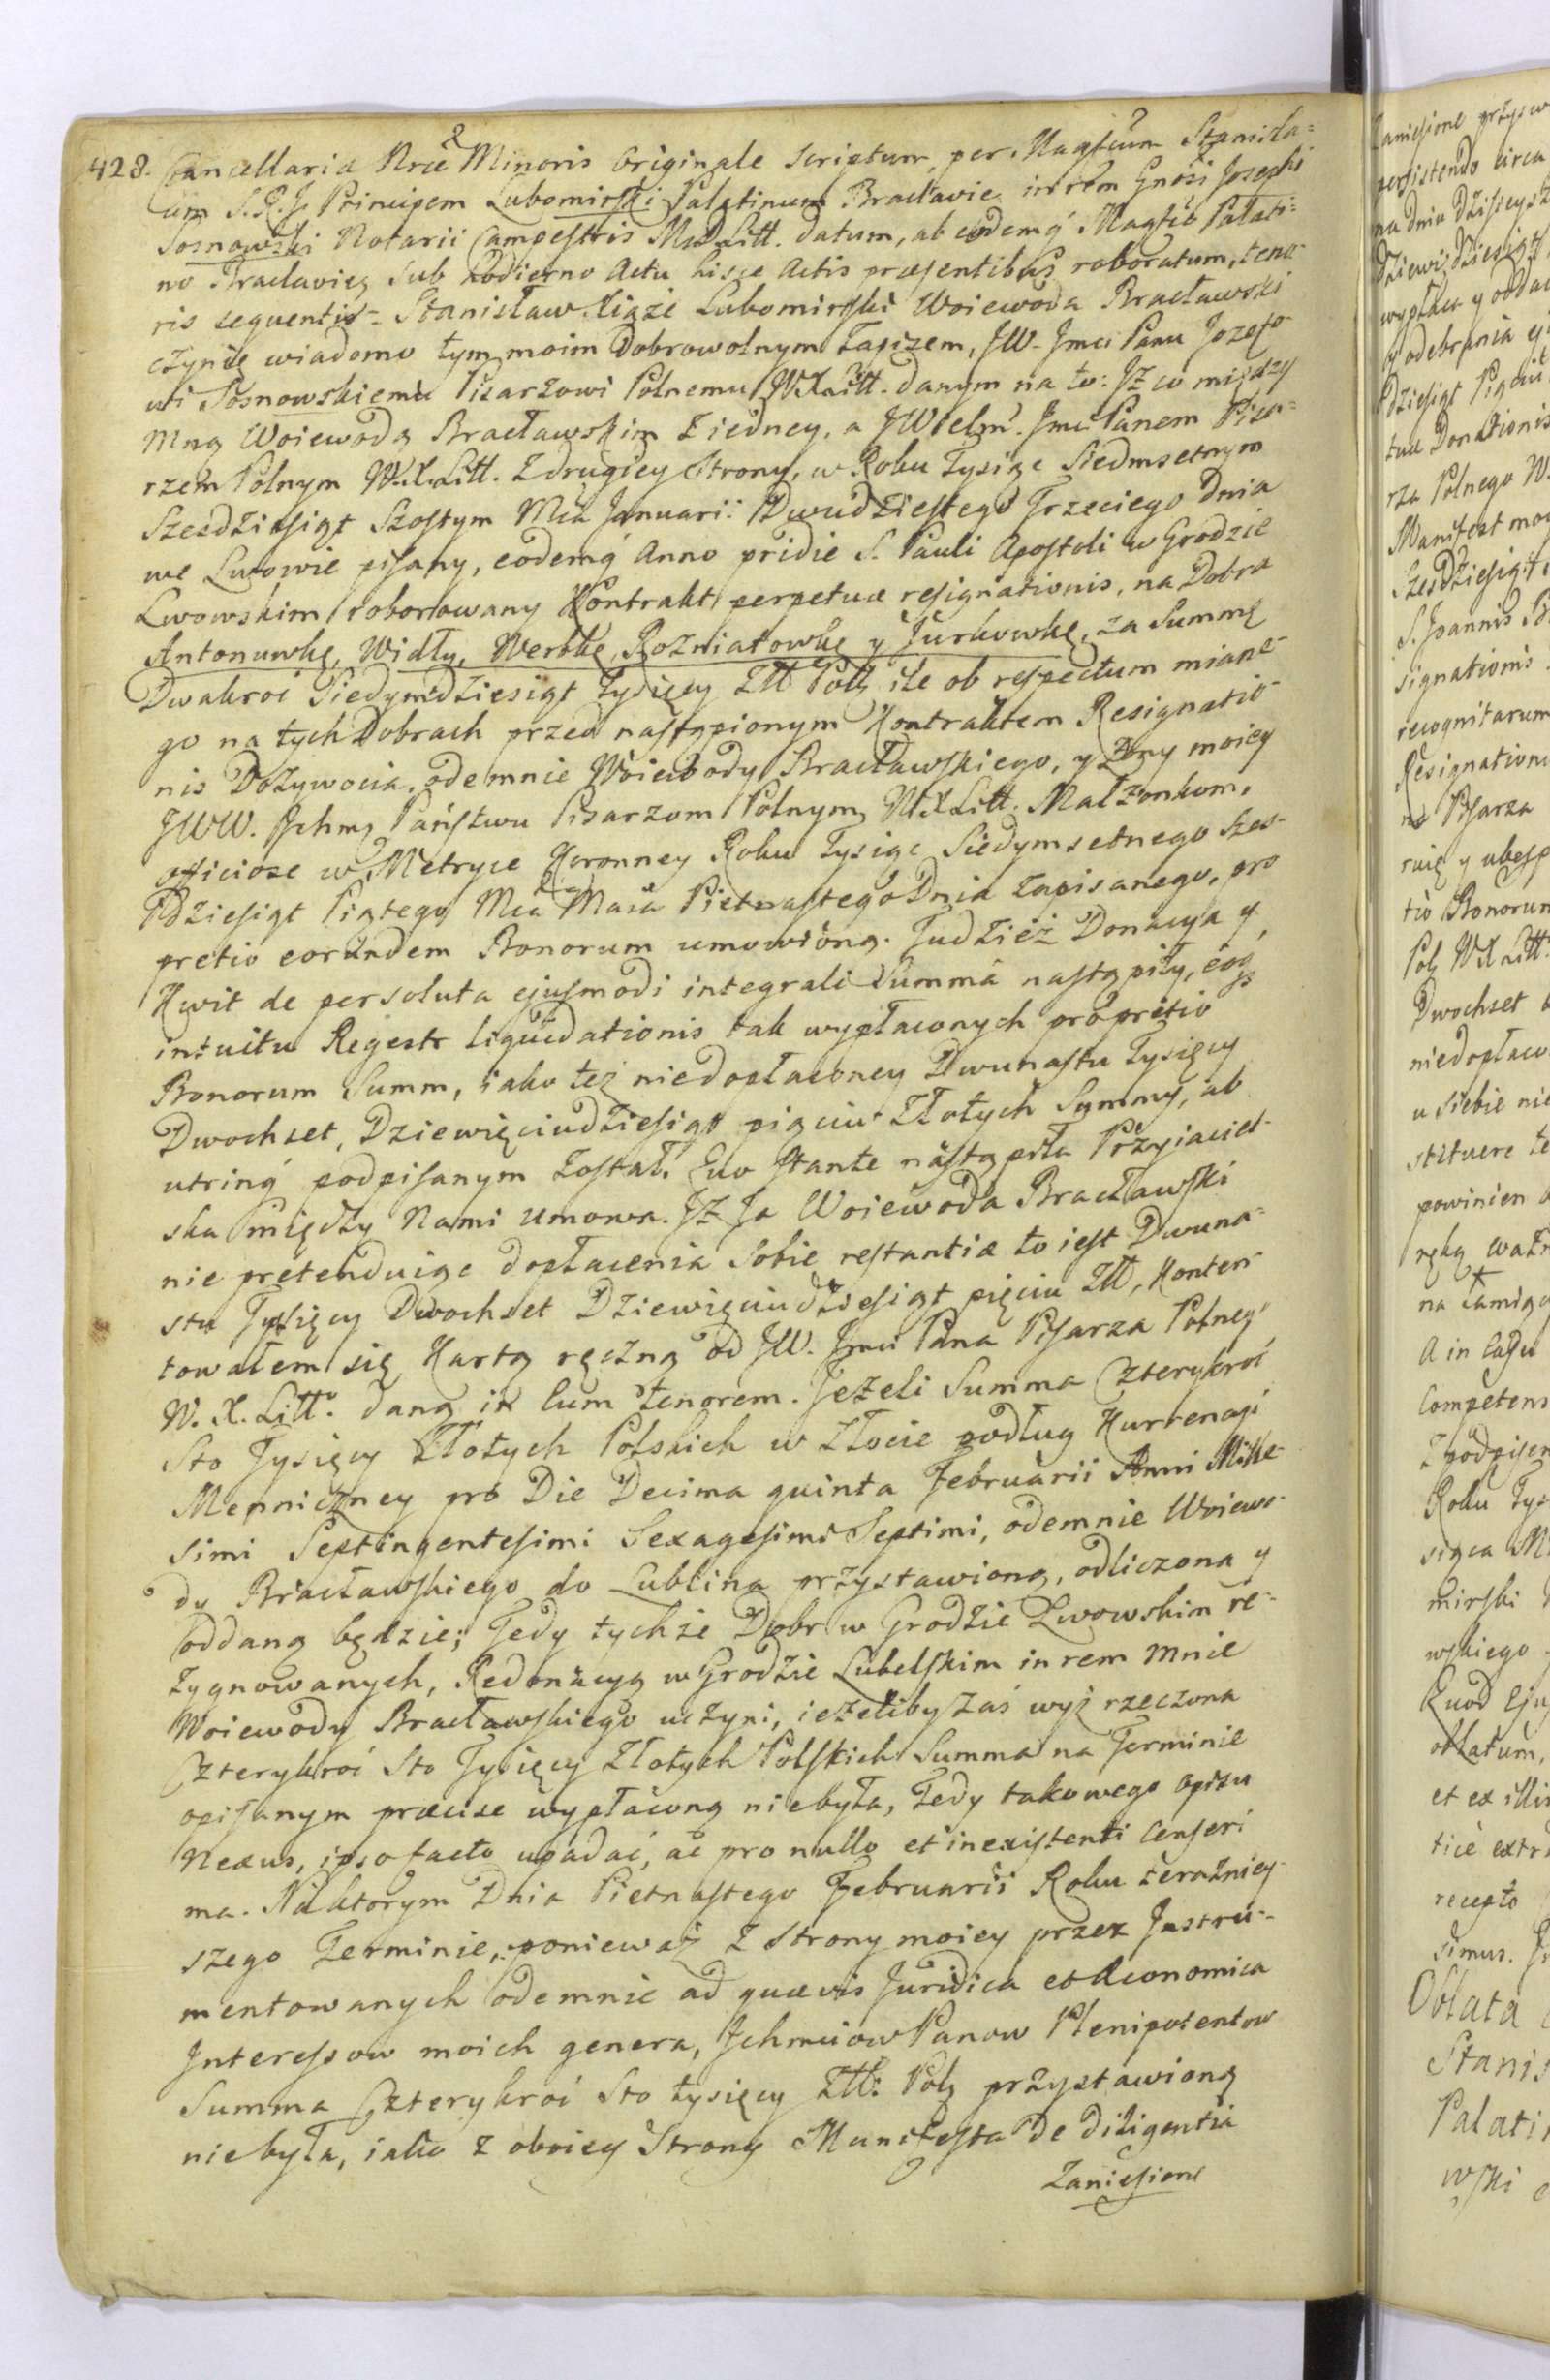 428. Cancellaria Nrae Minoris Originale Scriptum, per Magfcum Stanisla=
um S.R.J. Principem Lubomirski Palatinum Braclaviae in rem Gnosi Josephi
Sosnowski Notarii Campestris M.D.Litt. datum, ab eodemq́ Magfco Palati=
no Braclavieñ sub hodierno Actu hisce Actis præsentibus roboratum, teno-
ris sequentis= Stanisław Xiąże Lubomirski Woiewoda Bracławski
czynię wiadomo tym moim Dobrowolnym Zapisem, JW. Jmci Panu Jozefo-
wi Sosnowskiemu Pisarzowi Polnemu W.X.Litt. danym na to: Jż co między
Mną Woiewodą Bracławskim z iedney, a JWielm̃. Jmci Panem Pisa=
rzem Polnym W.X.Litt. z drugiey Strony, w Roku Tysiąc Siedmsetnym
Szesdziesiąt Szostym Mca Januarii Dwudziestego Trzeciego Dnia
we Lwowie pisany, eodemq́ Anno pridie S. Pauli Apostoli w Grodzie
Lwowskim roborowany Kontrakt perpetuæ resignationis, na Dobra
Antonuwkę, Widły, Werbkę, Rozniatowkę y Jurkowkę, za Summę
Dwakroć Siedymdziesiąt Tysięcy Złł Polş ile ob respectum miane-
go na tych Dobrach przed nastąpionym Kontraktem Resignatio-
nis Dożywocia, odemnie Woiewody Bracławskiego, y Zony moiey
JWW. Jchmş Państwu Pisarzom Polnym W.X.Litt. Małżonkom,
officiose w Metryce Koronney Roku Tysiąc Siedymsetnego Szes-
dziesiąt Piątego Mca Maia Pietnastego Dnia zapisanego, pro
pretio eorundem Bonorum umowioną. Tudzież Donacya y
Kwit de persoluta ejusmodi integrali Summa nastąpiły, eoqş
intuitu Regestr liquidationis tak wypłaconych pro pretio
Bonorum Summ, iako też niedopłaconey Dwunastu Tysięcy
Dwochset, Dziewięciudziesiąt pięciu Złotych Summy, ab
utrinq́ podpisanym został. Quo stante nastąpiła Przyiaciel-
ska między Nami umowa. Jż Ja Woiewoda Bracławski
nie pretenduiąc dopłacenia sobie restantiæ to iest Dwuna=
stu Tysięcy Dwochset Dziewięciudziesiąt pięciu Złł, Konten-
towałem się Kartą ręczną od JW. Jmci Pana Pisarza Polneg°
W.X.Litt. daną in eum tenorem. Jeżeli Summa Czterykroć
Sto Tysięcy Złotych Polskich w Złocie podług Kurrencyi
Menniczney pro Die Decima quinta Februarii Anni Mille-
simi Septingentesimi Sexagesimi Septimi, odemnie Woiewo-
dy Bracławskiego do Lublina przystawiona, odliczona y
oddana będzie; Tedy tychże Dobr w Grodzie Lwowskim re-
zygnowanych, Redonacyą w Grodzie Lubelskim in rem mnie
Woiewody Bracławskiego uczyni, ieżeliby zaś wyż rzeczona
Czterykroć Sto Tysięcy Złotych Polskich Summa na Terminie
opisanym præcise wypłaconą niebyła, Tedy takowego opisu
Nexus, ipso facto upadać, ac pro nullo et inexistenti censeri
ma. Na ktorym Dnia Pietnastego Februarii Roku teraźniey-
szego Terminie, ponieważ z Strony moiey przez Jnstru-
mentowanych odemnie ad quævis Juridica et Æconomica
Jnteressow moich genera, Jchmciow Panow Plenipotentow
Summa Czterykroć Sto tysięcy Złł: Polş przystawioną
niebyła, iako z oboiey Strony Manifesta de diligentia
Zaniesione